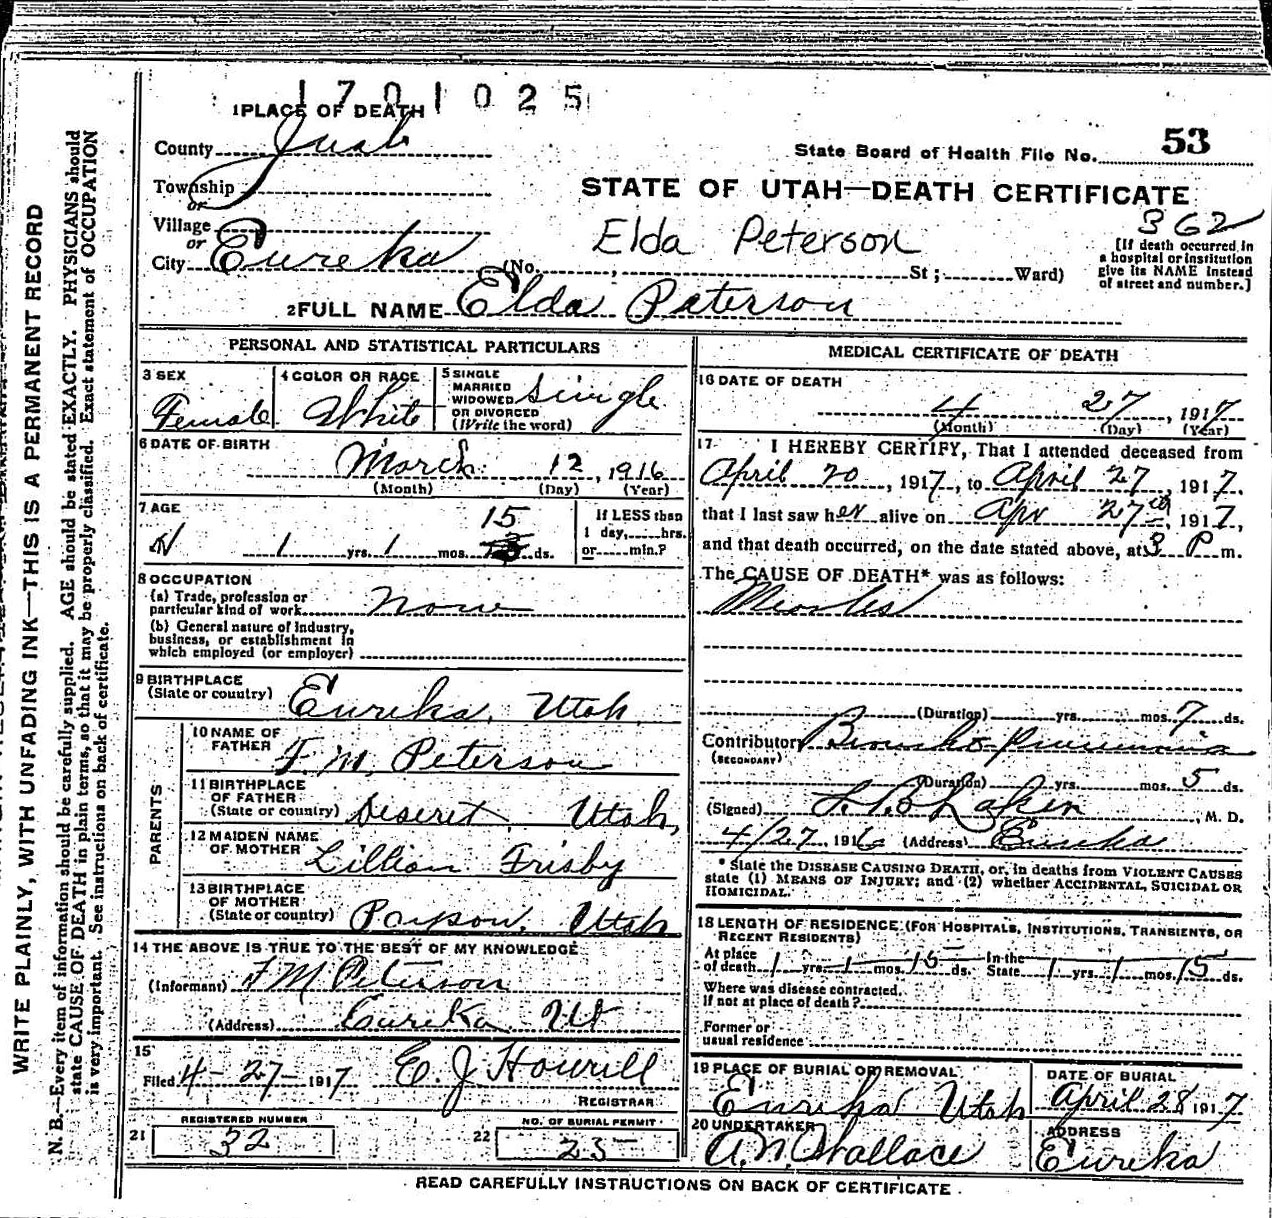 1701025
1 PLACE OF DEATH
County Juab
State Board of Health File No. 53
Township
or
STATE OF UTAH—DEATH CERTIFICATE
Village
or
Elda Peterson
362
City Eureka (No. ; St; Ward)
[If death occurred in
a hospital or institution
give its NAME instead
of street and number.]
2 FULL NAME Elda Paterson
PERSONAL AND STATISTICAL PARTICULARS
3 SEX
Female
4 COLOR OR RACE
White
5 SINGLE
MARRIED
WIDOWED
OR DIVORCED
(Write the word)
Single
6 DATE OF BIRTH
March 12, 1916
(Month) (Day) (Year)
7 AGE
15
1 yrs. 1 mos. ds.
If LESS than
1 day, hrs.
or min.?
8 OCCUPATION
(a) Trade, profession or
particular kind of work None
(b) General nature of industry,
business, or establishment in
which employed (or employer)
9 BIRTHPLACE
(State or country) Eureka, Utah
PARENTS
10 NAME OF
FATHER F. M. Peterson
11 BIRTHPLACE
OF FATHER
(State or country) Deseret, Utah,
12 MAIDEN NAME
OF MOTHER Lillian Frisby
13 BIRTHPLACE
OF MOTHER
(State or country) Payson, Utah
14 THE ABOVE IS TRUE TO THE BEST OF MY KNOWLEDGE
(Informant) F M Peterson
(Address) Eureka Ut
15
Filed 4-27-1917 E. J. Howell
REGISTRAR
REGISTERED NUMBER
21 32
NO. OF BURIAL PERMIT
22 25
MEDICAL CERTIFICATE OF DEATH
16 DATE OF DEATH
4 27, 1917
(Month) (Day) (Year)
17 I HEREBY CERTIFY, That I attended deceased from
April 20, 1917, to April 27, 1917,
that I last saw her alive on Apr 27th, 1917,
and that death occurred, on the date stated above, at 3 P m.
The CAUSE OF DEATH* was as follows:
Measles
(Duration) yrs. mos. 7 ds.
Contributory Broncho-Pneumonia
(SECONDARY)
(Duration) yrs. mos. 5 ds.
(Signed) , M. D.
4/27 1916 (Address) Eureka
* State the DISEASE CAUSING DEATH, or, in deaths from VIOLENT CAUSES
state (1) MEANS OF INJURY; and (2) whether ACCIDENTAL, SUICIDAL OR
HOMICIDAL.
18 LENGTH OF RESIDENCE (FOR HOSPITALS, INSTITUTIONS, TRANSIENTS, OR
RECENT RESIDENTS)
At place
of death 1 yrs. 1 mos. 15 ds. In the
State 1 yrs. 1 mos. 15 ds.
Where was disease contracted,
if not at place of death?
Former or
usual residence
19 PLACE OF BURIAL OR REMOVAL
Eureka Utah
DATE OF BURIAL
April 28 1917
20 UNDERTAKER
A. N. Wallace
ADDRESS
Eureka
READ CAREFULLY INSTRUCTIONS ON BACK OF CERTIFICATE
WRITE PLAINLY, WITH UNFADING INK—THIS IS A PERMANENT RECORD
N. B.—Every item of information should be carefully supplied. AGE should be stated EXACTLY. PHYSICIANS should
state CAUSE OF DEATH in plain terms, so that it may be properly classified. Exact statement of OCCUPATION
is very important. See instructions on back of certificate.